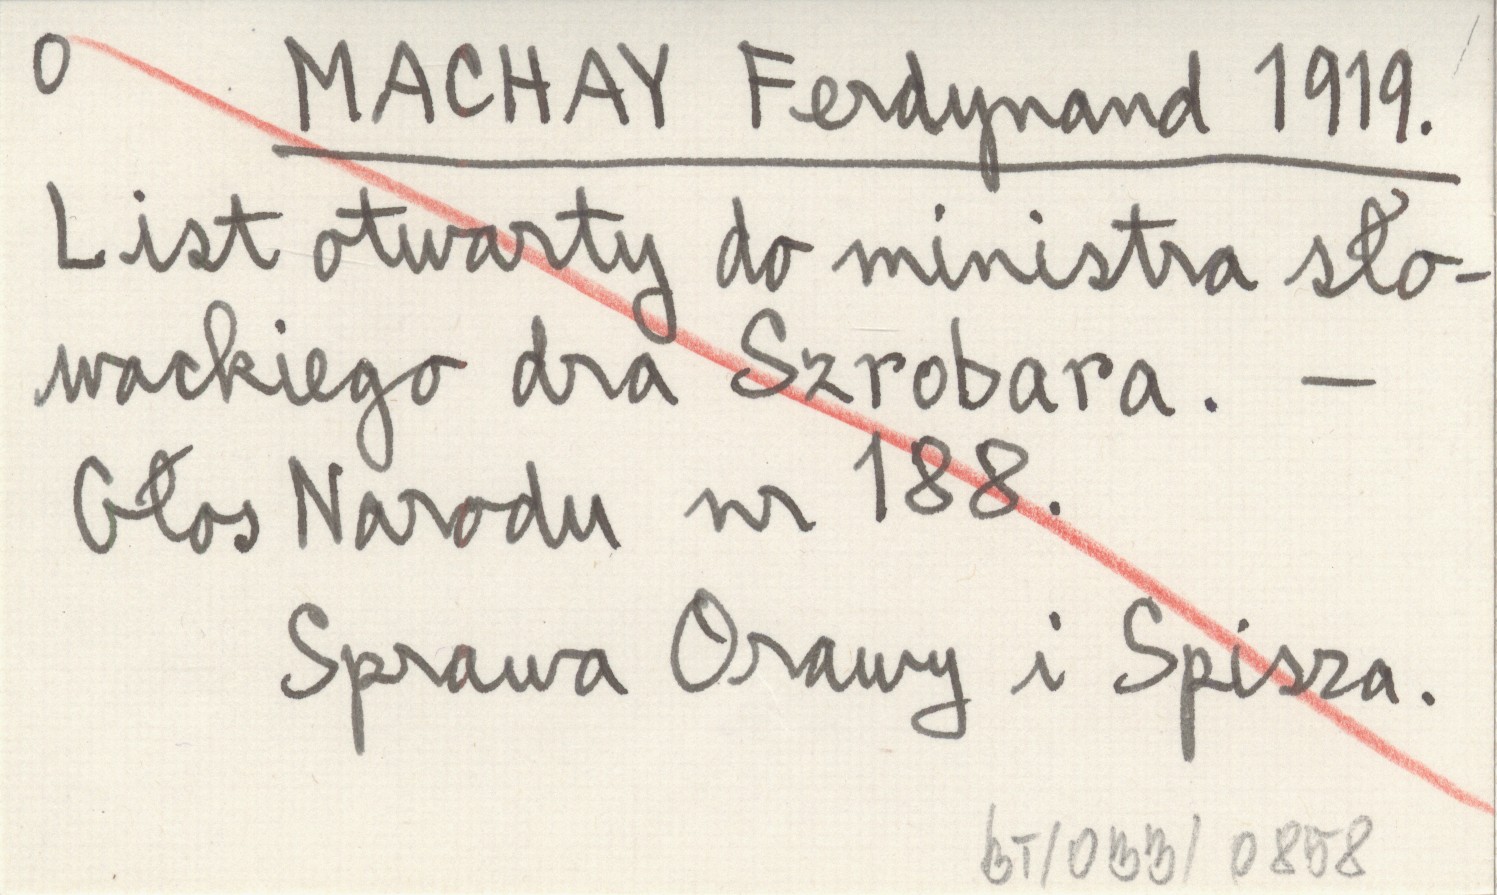 O MACHAY Ferdynand 1919.
List otwarty do ministra sło-
wackiego dra Szrobara. —
Głos Narodu nr 188.
Sprawa Orawy i Spisza.
BT/033/0858